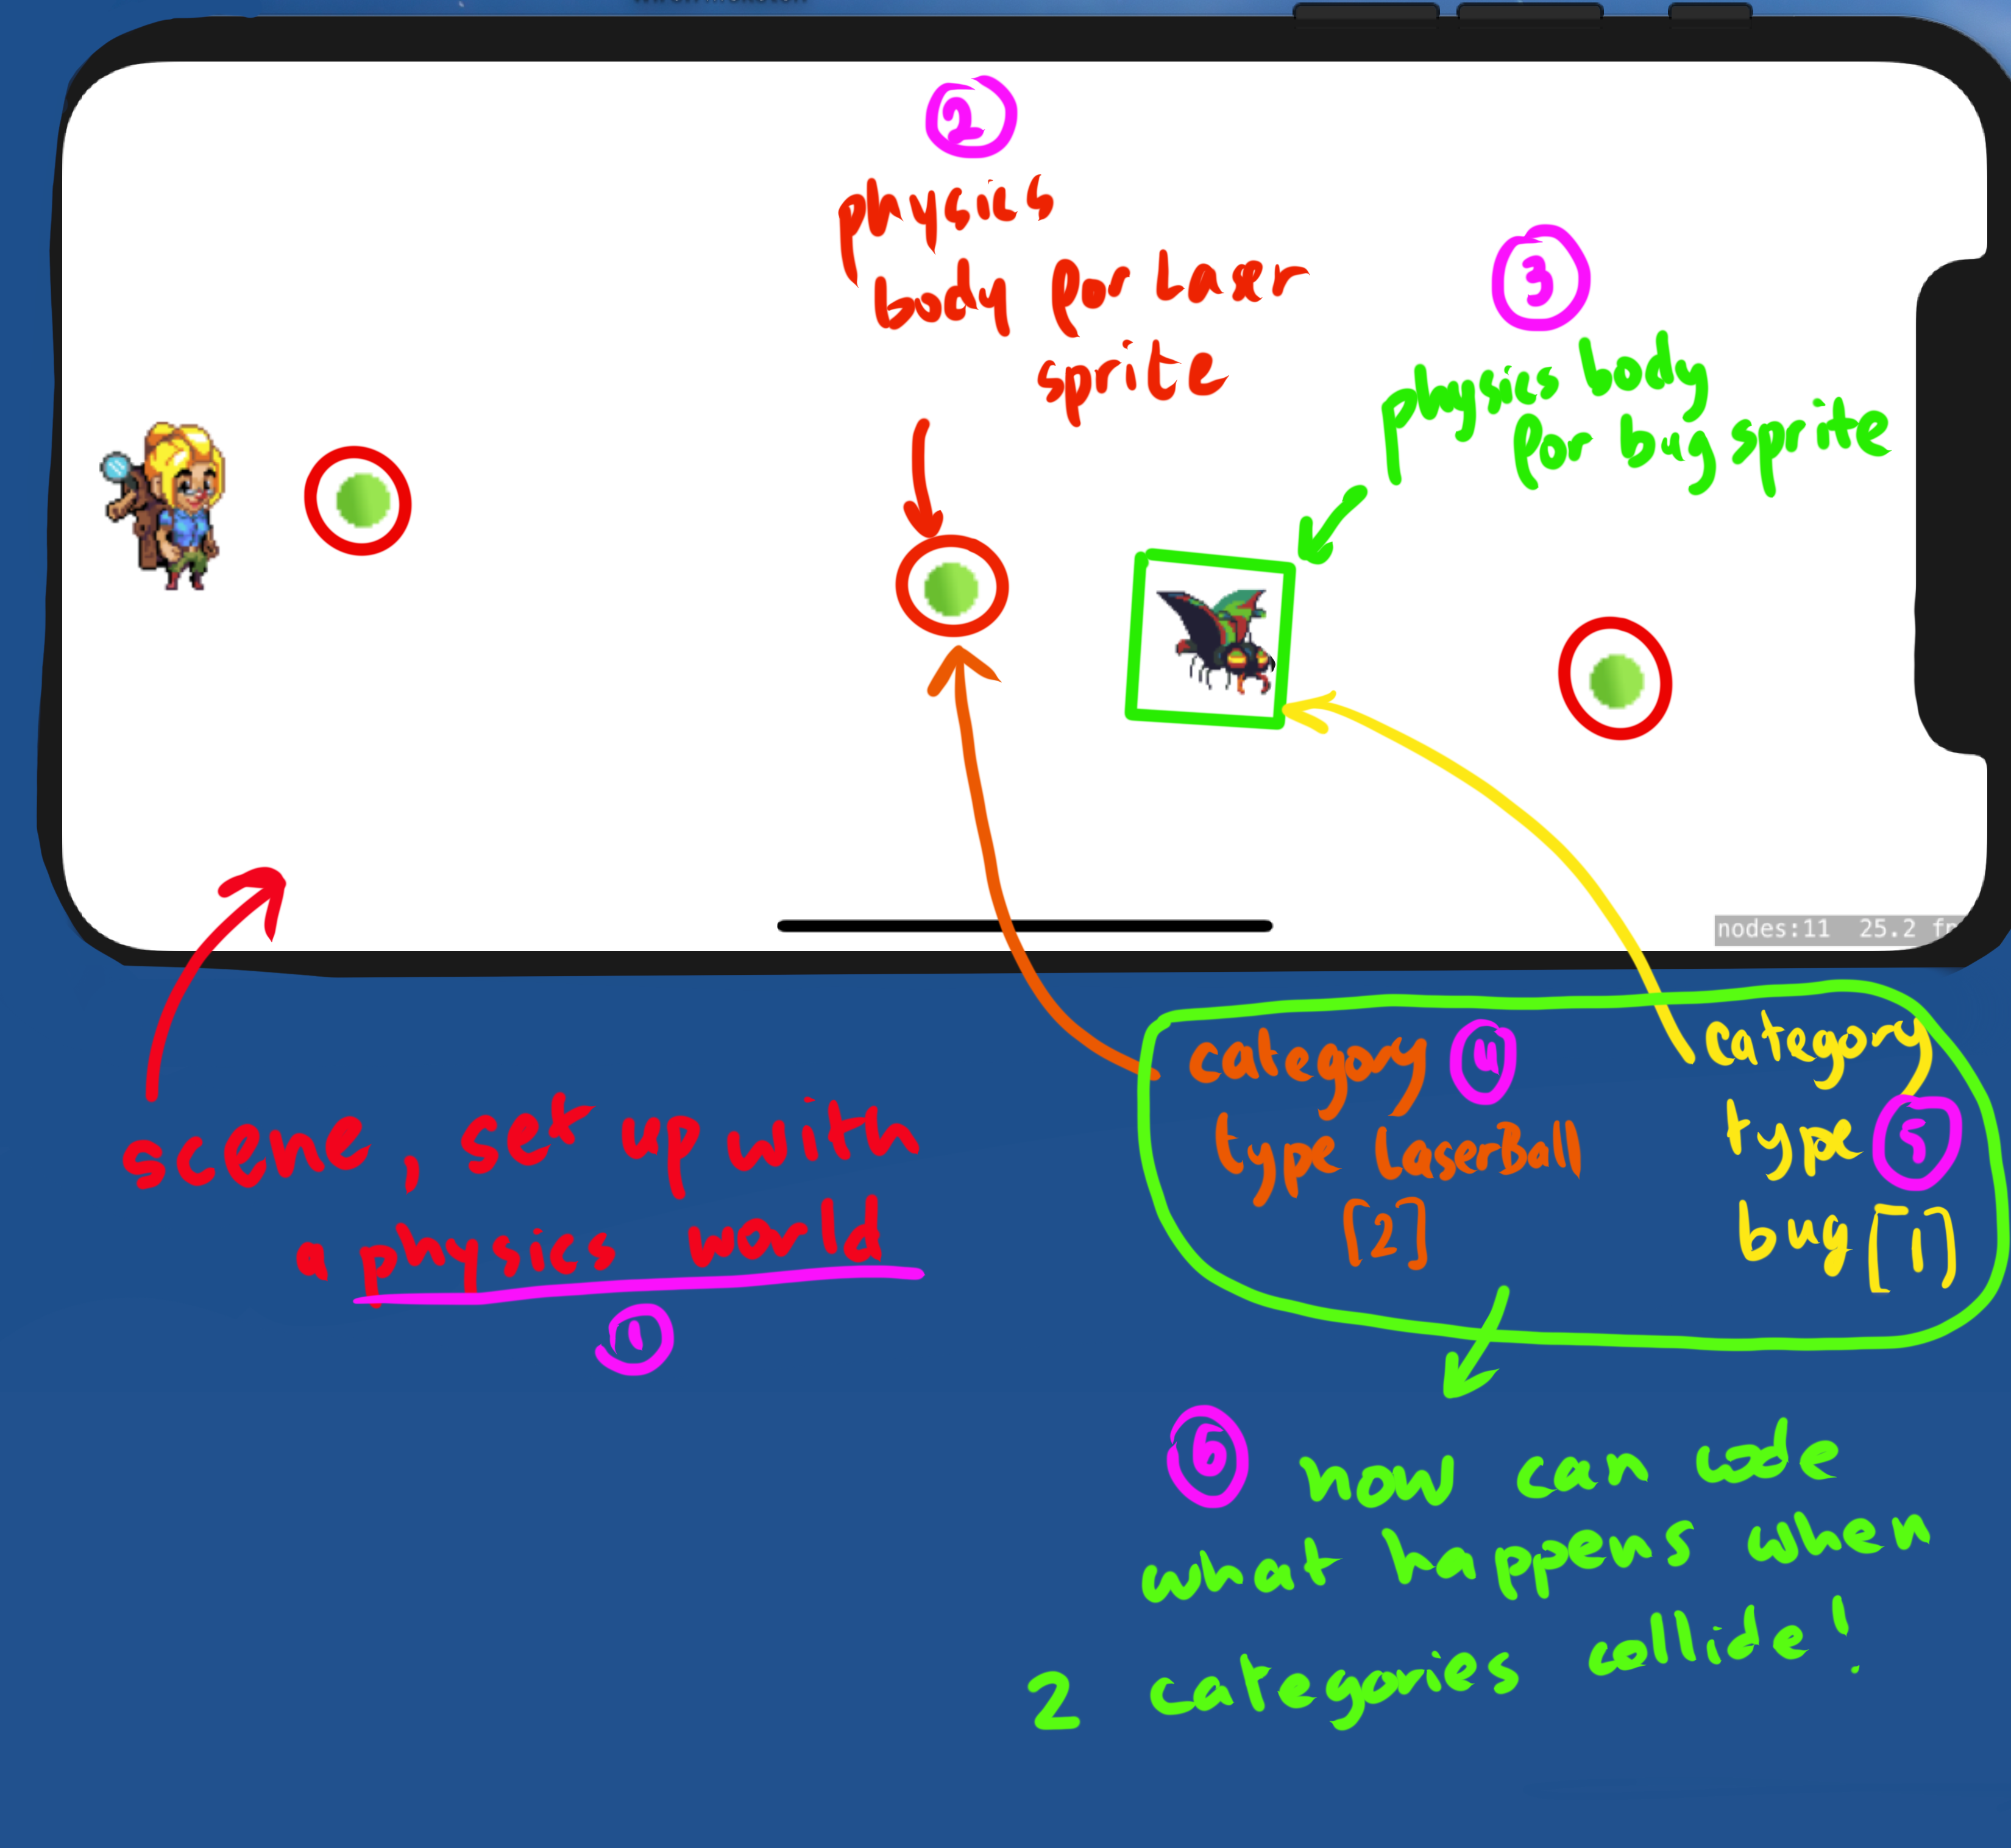 2
physics
body for Laser
sprite
3
physics body
for bug sprite
nodes:11 25.2
scene, set up with
a physics world
1
category 4
type LaserBall
[2]
category
type 5
bug [1]
6 now can code
what happens when
2 categories collide!